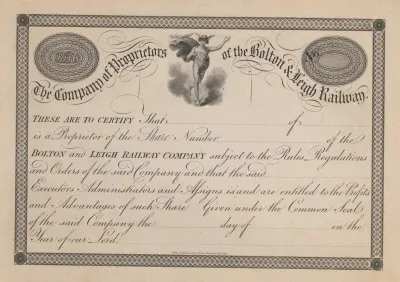 The Company of Proprietors of the Bolton & Leigh Railway.
No.
THESE ARE TO CERTIFY That of
is a Proprietor of the Share Number of the
BOLTON and LEIGH RAILWAY COMPANY subject to the Rules, Regulations
and Orders of the said Company and that the said
Executors Administrators and Assigns is and are entitled to the Profits
and Advantages of such Share Given under the Common Seal
of the said Company the day of on the
Year of our Lord